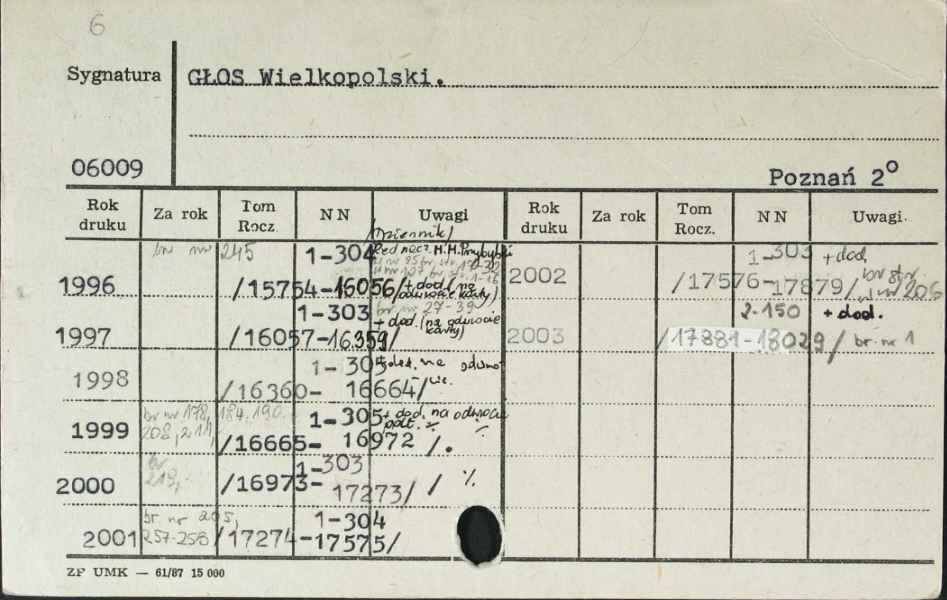 6
Sygnatura
GŁOS Wielkopolski.
06009
Poznań 2°
Rok druku Za rok Tom Rocz. NN Uwagi Rok druku Za rok Tom Rocz. NN Uwagi.
/Dziennik/
br nr 245 1-304 Red nacz. M.M. Przybylski 1-303 + dod.
1996 /15754-16056/ + dod. (na odwrocie karty) 2002 /17576-17879/ br str. w nr 206
1-303 br nr 27-39 2-150 + dod.
1997 /16057-16359/ + dod. (na odwrocie karty) 2003 /17881-18029/ br. nr 1
1-305 dod. na odwro-
1998 /16360-16664/ cie.
br nr 178, 184, 190. 1-305 + dod. na odwrocie
1999 208, 211, /16665-16972/.
br 1-303
2000 219, /16973-17273/ / ·/·
br. nr 205, 1-304
2001 257-258 /17274-17575/
ZP UMK — 61/87 15 000